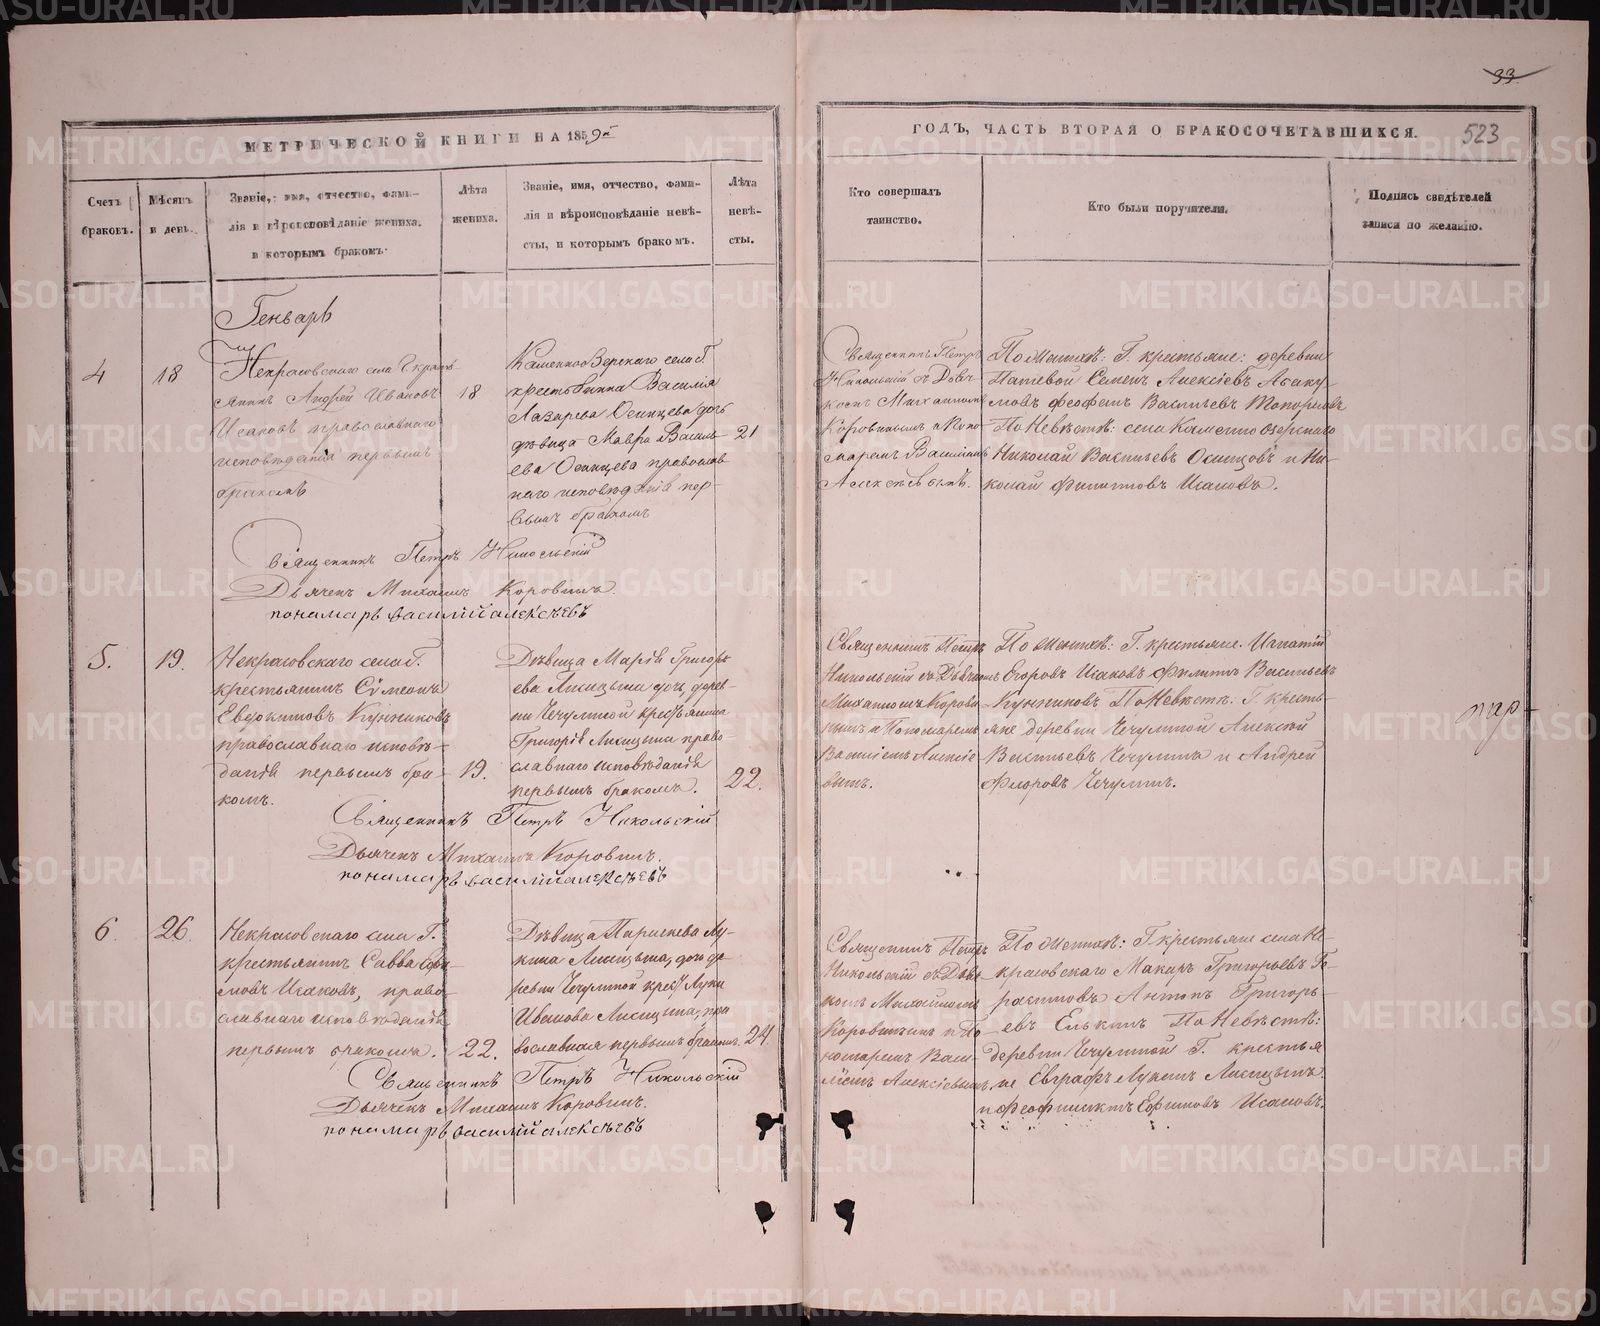 33
МЕТРИЧЕСКОЙ КНИГИ НА 1859й
ГОДЪ, ЧАСТЬ ВТОРАЯ О БРАКОСОЧЕТАВШИХСЯ.
523
Счетъ браковъ.
Мѣсяцъ и день.
Званіе, имя, отчество, фамилія и вѣроисповѣданіе жениха, и которымъ бракомъ.
Лѣта жениха.
Званіе, имя, отчество, фамилія и вѣроисповѣданіе невѣсты, и которымъ бракомъ.
Лѣта невѣсты.
Кто совершалъ таинство.
Кто были поручители.
Подпись свидѣтелей записи по желанію.
Генварь
4
18
Некрасовскаго села Г. крестьянинъ Андрей Ивановъ
Исаковъ православнаго
исповѣданія первымъ
бракомъ
18
Каменноозерскаго села Г.
крестьянина Василія
Лазарева Осинцева дочь
дѣвица Мавра Василь-
ева Осинцева православ-
наго исповѣданія пер-
вымъ бракомъ
21
Священникъ Петръ
Никольскій съ Дьяч-
комъ Михаиломъ
Коровинымъ и Поно-
маремъ Василіемъ
Алексѣевымъ.
По Женихѣ: Г. крестьяне: деревни
Семенъ Алексѣевъ Абаку-
мовъ Феофанъ Васильевъ Топорковъ
По Невѣстѣ: села Каменно озерскаго
Николай Васильевъ Осинцовъ и Ни-
колай Филиповъ Исаковъ.
Священникъ Петръ Никольскій
Дьячекъ Михаилъ Коровинъ.
пономарь василій алексѣевъ
5.
19.
Некрасовскаго села Г.
крестьянинъ Симеонъ
Евдокимовъ Кунниковъ
православнаго исповѣ-
данія первымъ бра-
комъ.
19.
Дѣвица Марія Григорь
ева Лисицына дочь, дерев-
ни Чечулиной крестьянина
Григорія Лисицына право-
славнаго исповѣданія
первымъ бракомъ.
22.
Священникъ Петръ
Никольскій съ Дьячкомъ
Михаиломъ Корови-
нымъ и Пономаремъ
Василіемъ Алексѣе-
вымъ.
По Женихѣ: Г. крестьяне. Игнатій
Егоровъ Исаковъ Филипъ Васильевъ
Кунниковъ По Невѣстѣ: Г. кресть-
яне деревни Чечулиной Алексѣй
Васильевъ Чечулинъ и Андрей
Федоровъ Чечулинъ.
Священникъ Петръ Никольскій
Дьячекъ Михаилъ Коровинъ.
пономарь василій алексѣевъ
6.
26.
Некрасовскаго села Г.
крестьянинъ Савва
Исаковъ, право-
славнаго исповѣданія
первымъ бракомъ.
22.
Дѣвица Параскева Лу-
кина Лисицына, дочь де-
ревни Чечулиной крест. Луки
Иванова Лисицына, пра
вославная первымъ бракомъ.
24.
Священникъ Петръ
Никольскій съ Дьяч-
комъ Михаиломъ
Коровинымъ и По-
номаремъ Васи-
ліемъ Алексѣевымъ.
По Женихѣ: Г. крестьяне села Не-
красовскаго Макаръ Григорьевъ Ге-
расимовъ Антонъ Григорь-
евъ Елькинъ По Невѣстѣ:
деревни Чечулиной Г. крестья
не Евграфъ Лукинъ Лисицынъ
и Феофилактъ Ефимовъ Исаковъ.
Священникъ Петръ Никольскій
Дьячекъ Михаилъ Коровинъ.
пономарь василій алексѣевъ
METRIKI.GASO-URAL.RU